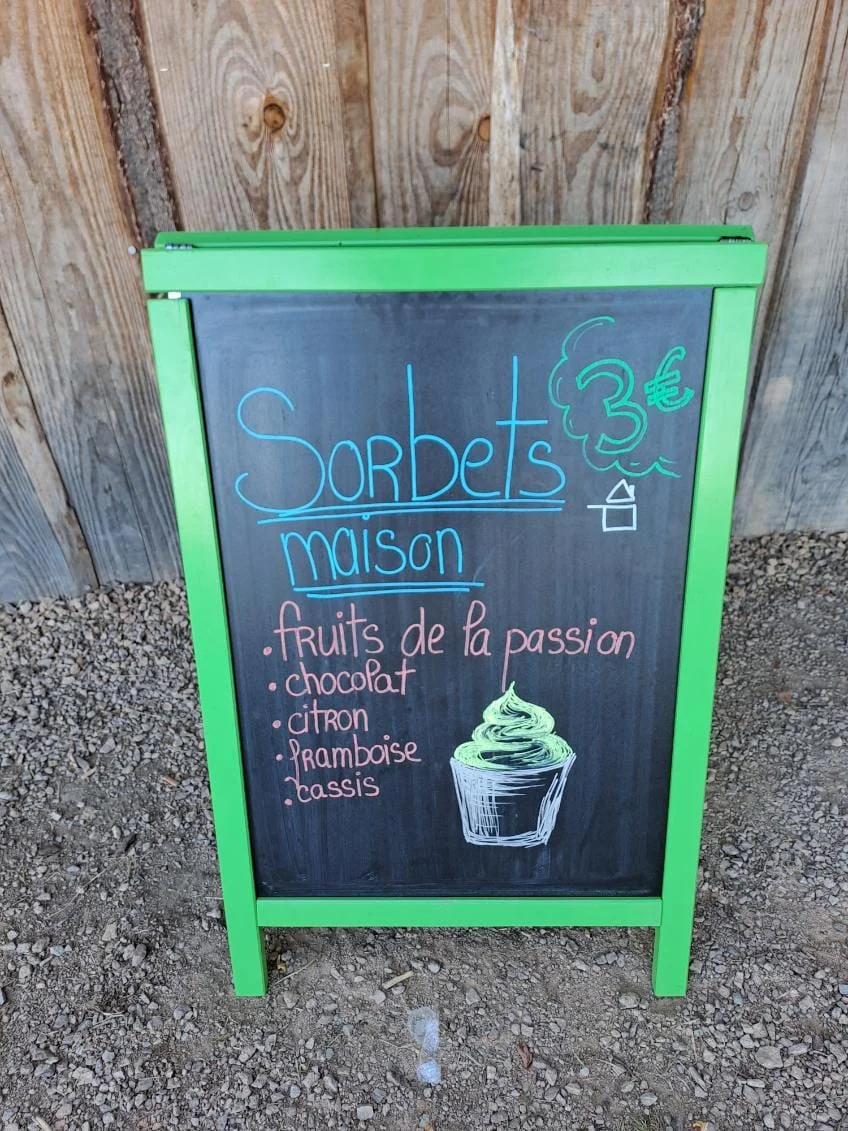 3€
Sorbets
maison
. fruits de la passion
. chocolat
. citron
. framboise
. cassis